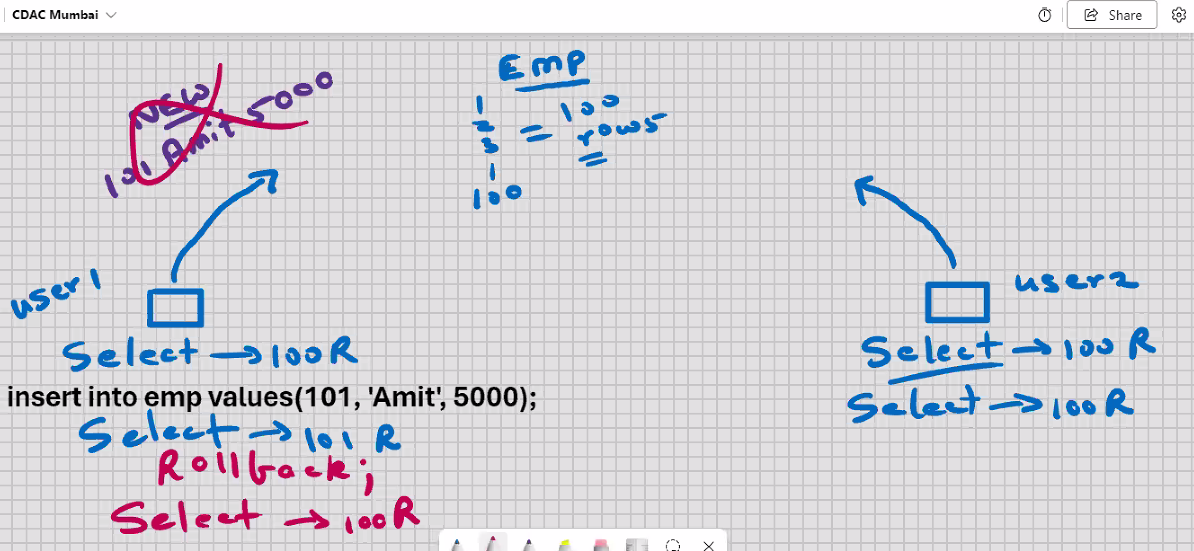 CDAC Mumbai
Share
NEW
101 Amit 5000
Emp
1
2
3
1
100
= 100
rows
user1
Select → 100R
insert into emp values(101, 'Amit', 5000);
Select → 101 R
Rollback;
Select → 100R
user2
Select → 100 R
Select → 100R